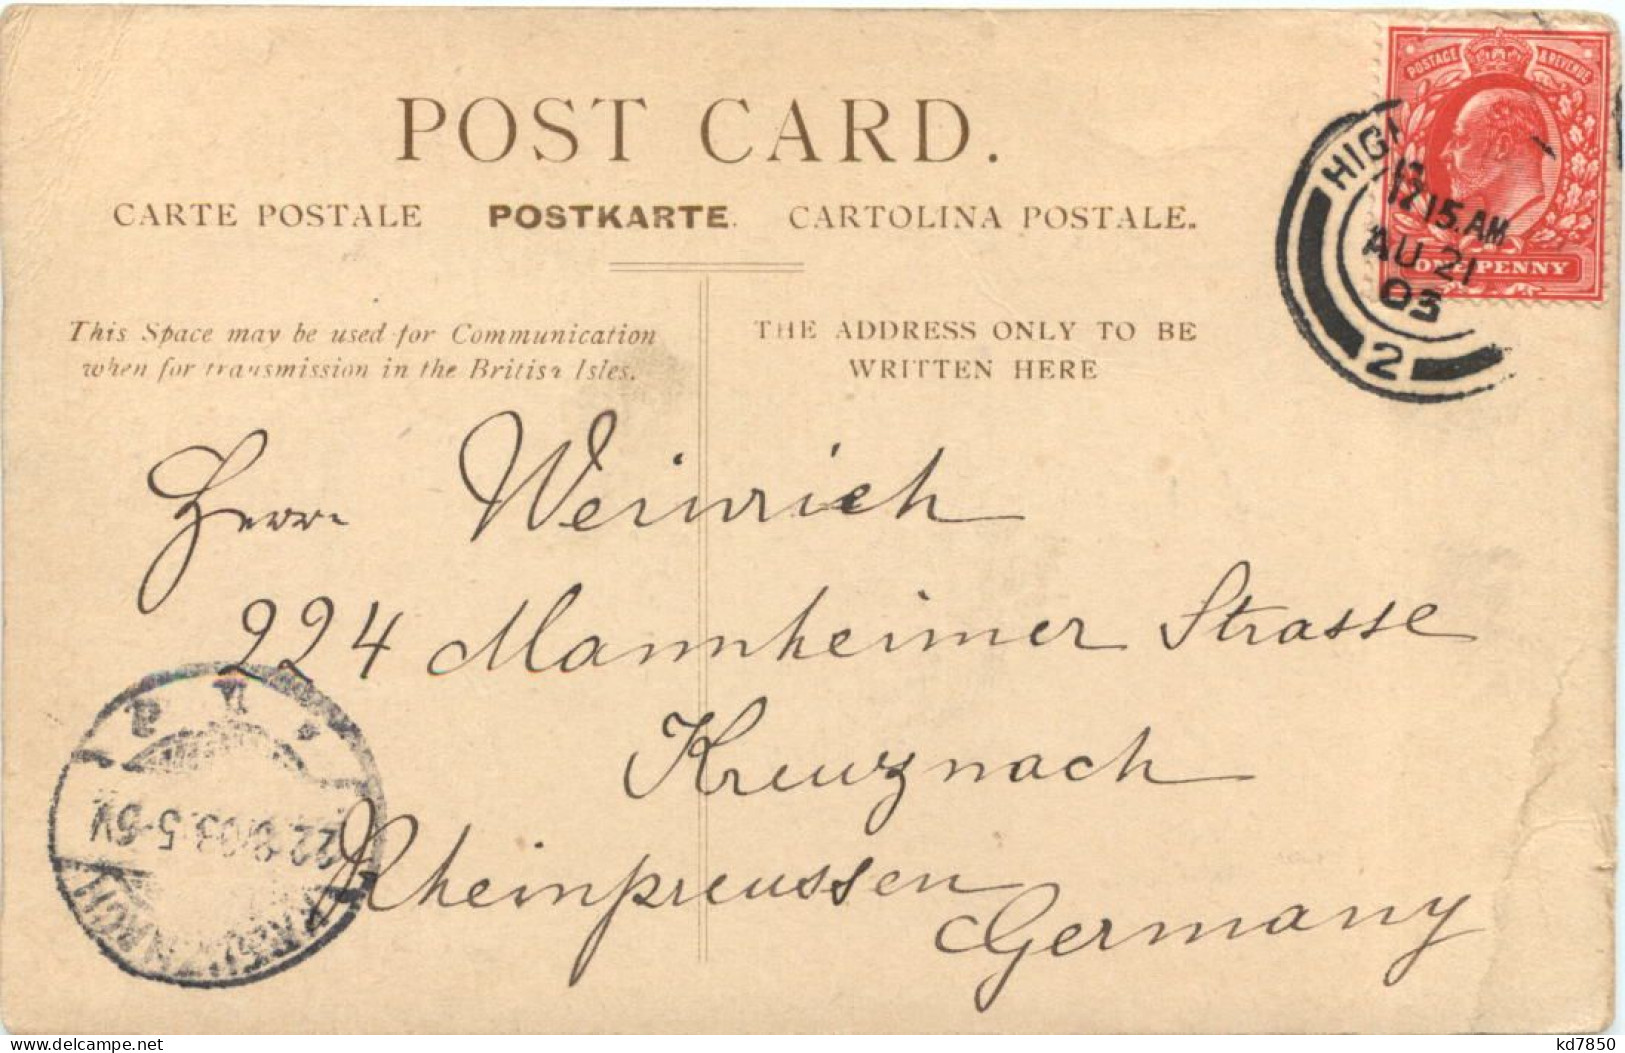 POST CARD.
CARTE POSTALE POSTKARTE. CARTOLINA POSTALE.
POSTAGE & REVENUE
ONE PENNY
12 15. AM
AU 21
03
2
This Space may be used for Communication
when for transmission in the British Isles.
THE ADDRESS ONLY TO BE
WRITTEN HERE
Herrn Weinrich
224 Mannheimer Strasse
Kreuznach
Rheinpreussen
Germany
KREUZNACH
22.8.03.5-6V
kd7850